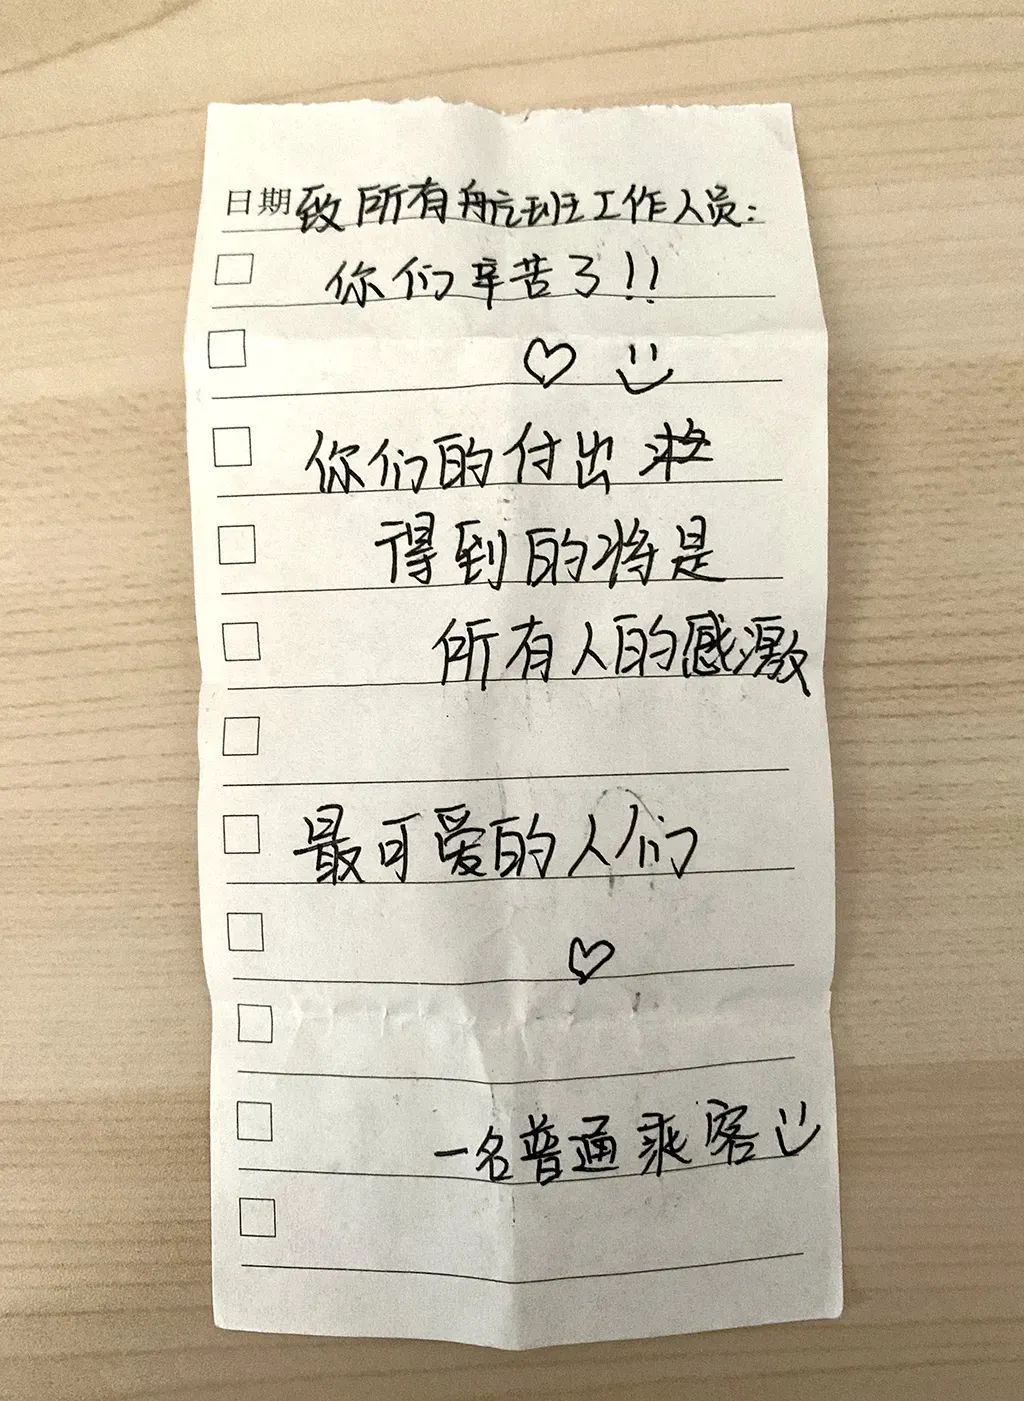 日期致所有航班工作人员：
你们辛苦了!!
你们的付出
得到的将是
所有人的感激
最可爱的人们
一名普通乘客